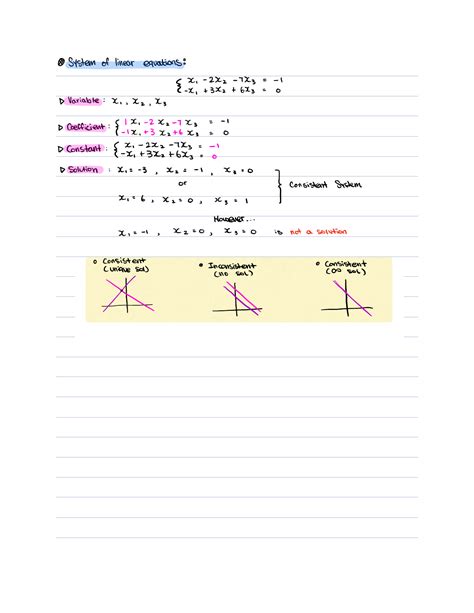 System of linear equations:
x₁ - 2x₂ - 7x₃ = -1
-x₁ + 3x₂ + 6x₃ = 0
Variable : x₁, x₂, x₃
Coefficient : 1x₁ - 2x₂ - 7x₃ = -1
-1x₁ + 3x₂ + 6x₃ = 0
Constant : x₁ - 2x₂ - 7x₃ = -1
-x₁ + 3x₂ + 6x₃ = 0
Solution : x₁ = -3 , x₂ = -1 , x₃ = 0
or
Consistent System
x₁ = 6 , x₂ = 0 , x₃ = 1
However...
x₁ = -1 , x₂ = 0 , x₃ = 0 is not a solution
Consistent (unique sol)
Inconsistent (no sol)
Consistent (∞ sol)